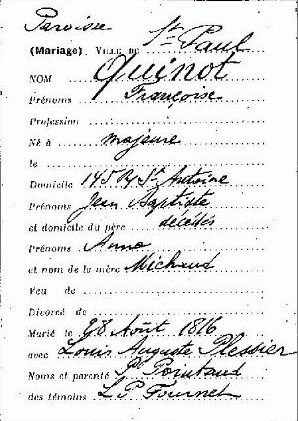 Paroisse
(Mariage) VILLE DE St Paul
NOM Quinot
Prénoms Françoise
Profession
Né à majeure
le
Domicile 145 R St Antoine
Prénoms Jean Baptiste
et domicile du père décédés
Prénoms Anne
et nom de la mère Michaud
Veu de
Divorcé de
Marié le 28 Août 1816
avec Louis Auguste Plessier
Noms et parenté
des témoins L P Fournet